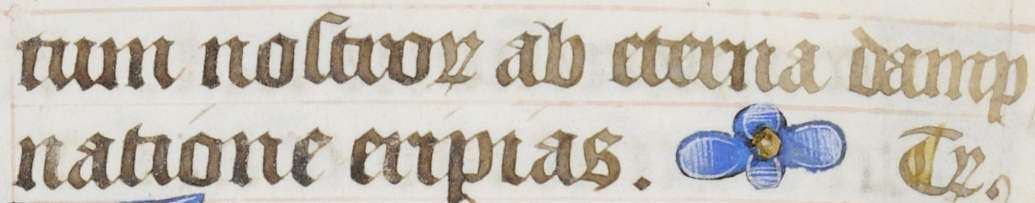 tum nostroꝝ ab eterna damp
natione eripias. Tr.